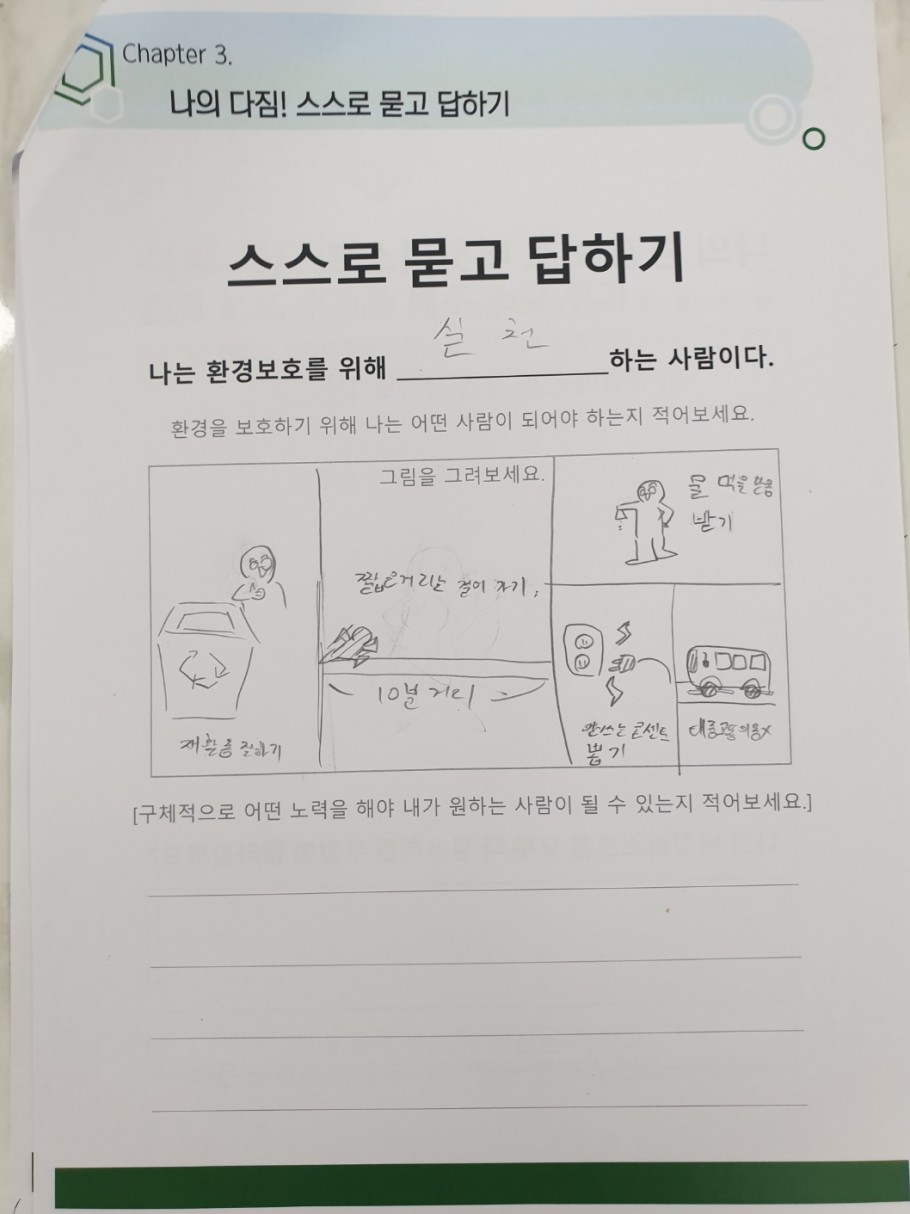 Chapter 3.
나의 다짐! 스스로 묻고 답하기
스스로 묻고 답하기
나는 환경보호를 위해 실천하는 사람이다.
환경을 보호하기 위해 나는 어떤 사람이 되어야 하는지 적어보세요.
그림을 그려보세요.
재활용 잘하기
짧은거리는 걸어 가기,
10분 거리
물 먹을 만큼
받기
안쓰는 콘센트
뽑기
대중교통 이용
[구체적으로 어떤 노력을 해야 내가 원하는 사람이 될 수 있는지 적어보세요.]